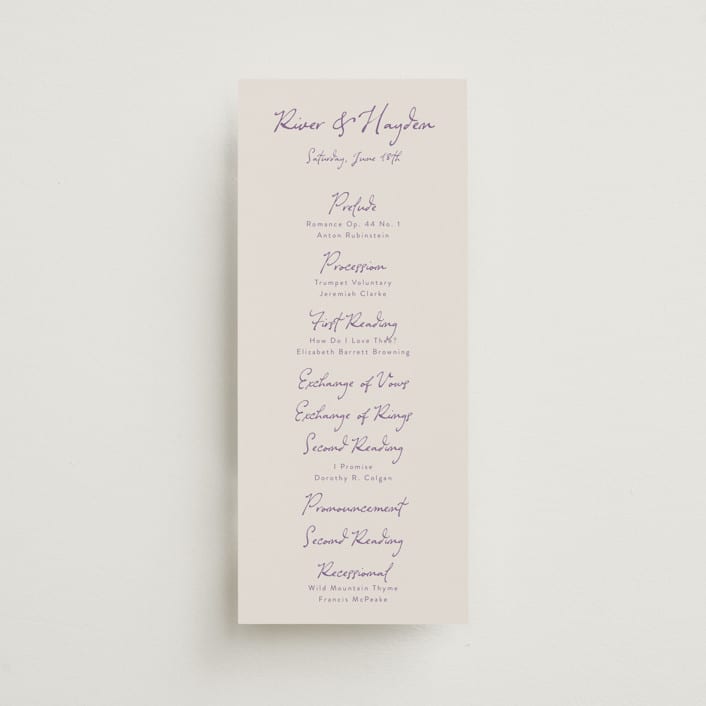 River & Hayden
Saturday, June 18th
Prelude
Romance Op. 44 No. 1
Anton Rubinstein
Procession
Trumpet Voluntary
Jeremiah Clarke
First Reading
How Do I Love Thee?
Elizabeth Barrett Browning
Exchange of Vows
Exchange of Rings
Second Reading
I Promise
Dorothy R. Colgan
Pronouncement
Second Reading
Recessional
Wild Mountain Thyme
Francis McPeake